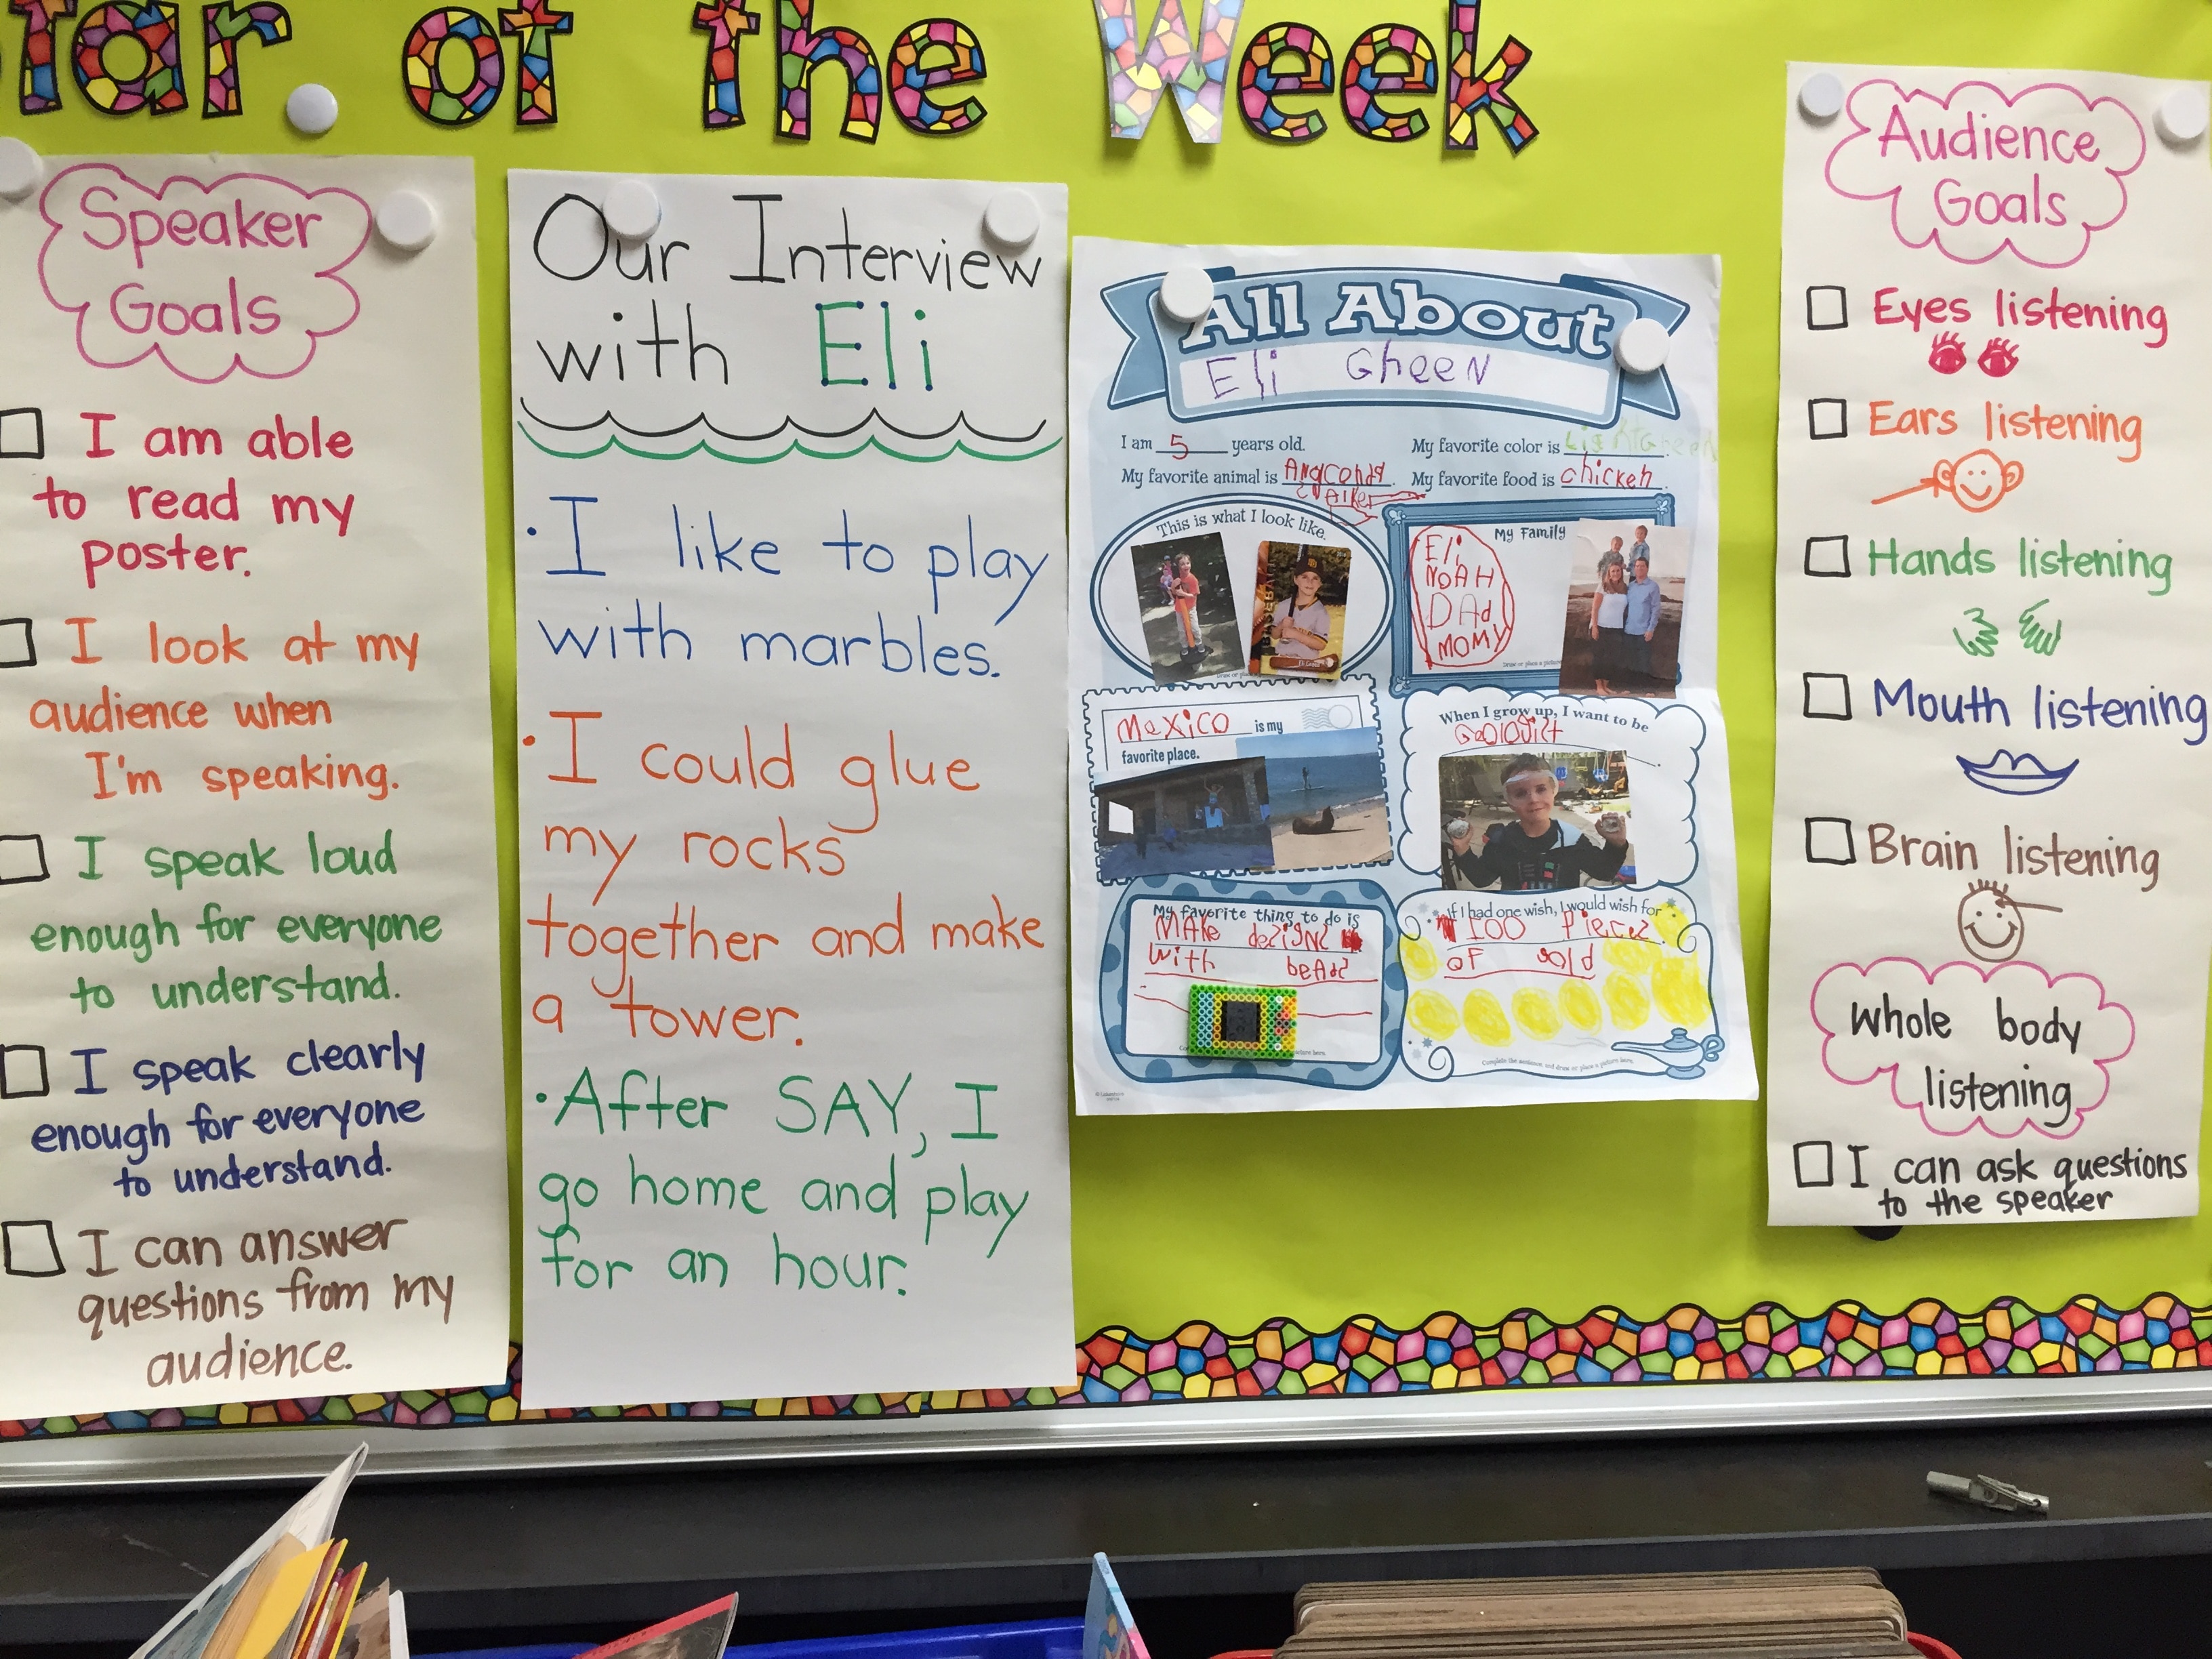 Star of the Week
Speaker
Goals
I am able
to read my
poster.
I look at my
audience when
I'm speaking.
I speak loud
enough for everyone
to understand.
I speak clearly
enough for everyone
to understand.
I can answer
questions from my
audience.
Our Interview
with Eli
• I like to play
with marbles.
• I could glue
my rocks
together and make
a tower.
• After SAY, I
go home and play
for an hour.
All About
Eli GheeN
I am 5 years old.
My favorite color is
My favorite animal is Anaconda
My favorite food is chicken.
This is what I look like.
My Family
Eli
NOAH
DAd
MOMY
Mexico is my
favorite place.
When I grow up, I want to be
My favorite thing to do is
MAKe desigNs
With beAds
If I had one wish, I would wish for
100 Pieces
oF gold
Complete the sentence, and draw or place a picture here.
Audience
Goals
Eyes listening
Ears listening
Hands listening
Mouth listening
Brain listening
Whole body
listening
I can ask questions
to the speaker